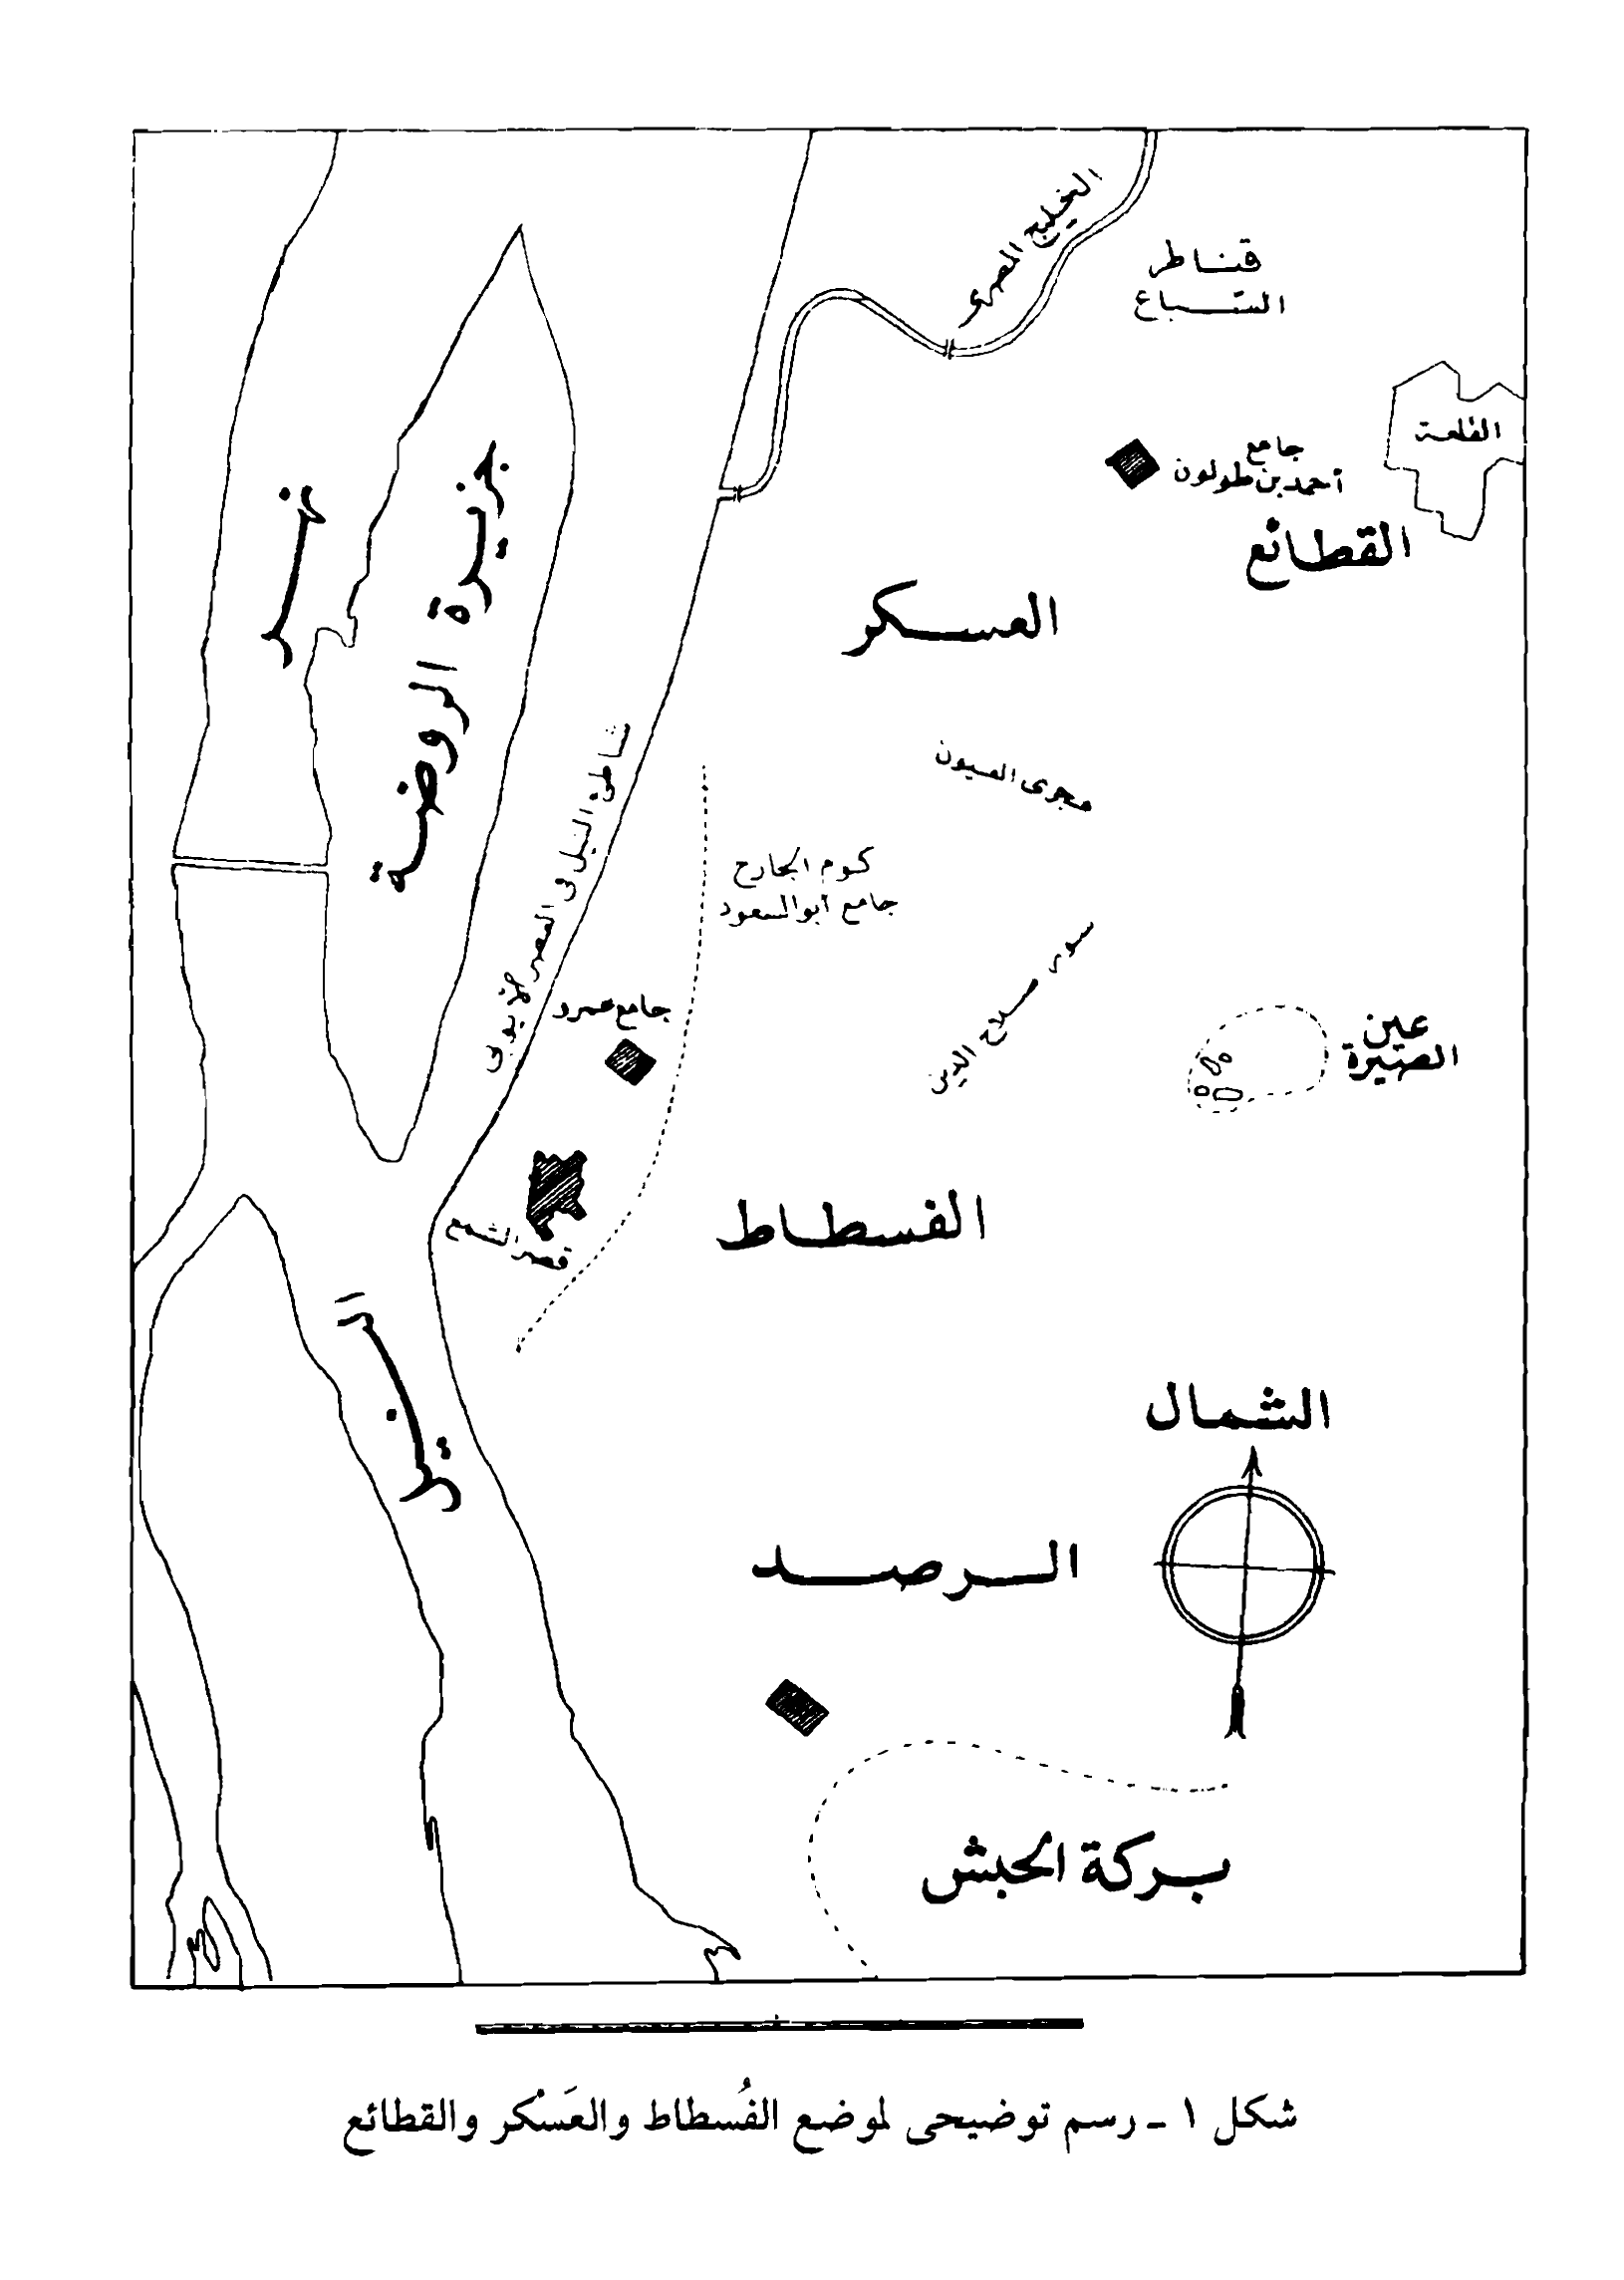 الخليج المصرى
قناطر
السّباع
القلعة
جامع
أحمد بن طولون
القطائع
العسكر
نهر
جزيرة الروضة
شاطئ النيل فى العصر الأيوبى
مجرى العيون
كوم الجارح
جامع أبو السعود
سور صلاح الدين
جامع عمرو
عين
الصيرة
قصر الشمع
الفسطاط
النيل
الشمال
الرصد
بركة الحبش
شكل ١ ـ رسم توضيحى لموضع الفُسطاط والعَسْكر والقطائع